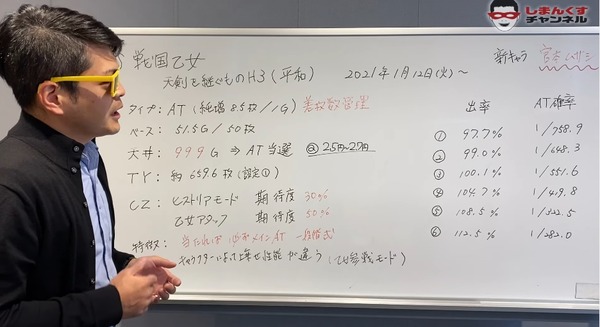 しまんくす
チャンネル
戦国乙女
新キャラ 宮本ムサシ
天剣を継ぐもの H3 (平和) 2021年1月12日(火)〜
タイプ: AT (純増8.5枚/1G) 差枚数管理
ベース: 51.5G/50枚
天井: 999G ⇒ AT当選
TY: 約659.6枚 (設定①)
CZ: ヒストリアモード 期待度 30%
乙女アタック 期待度 50%
特徴:
キャラクターによって上乗せ性能が違う (乙女参戦モード)
出率 AT確率
① 97.7% 1/758.9
② 99.0% 1/648.3
③ 100.1% 1/551.6
④ 104.7% 1/419.8
⑤ 108.5% 1/322.5
⑥ 112.5% 1/282.0